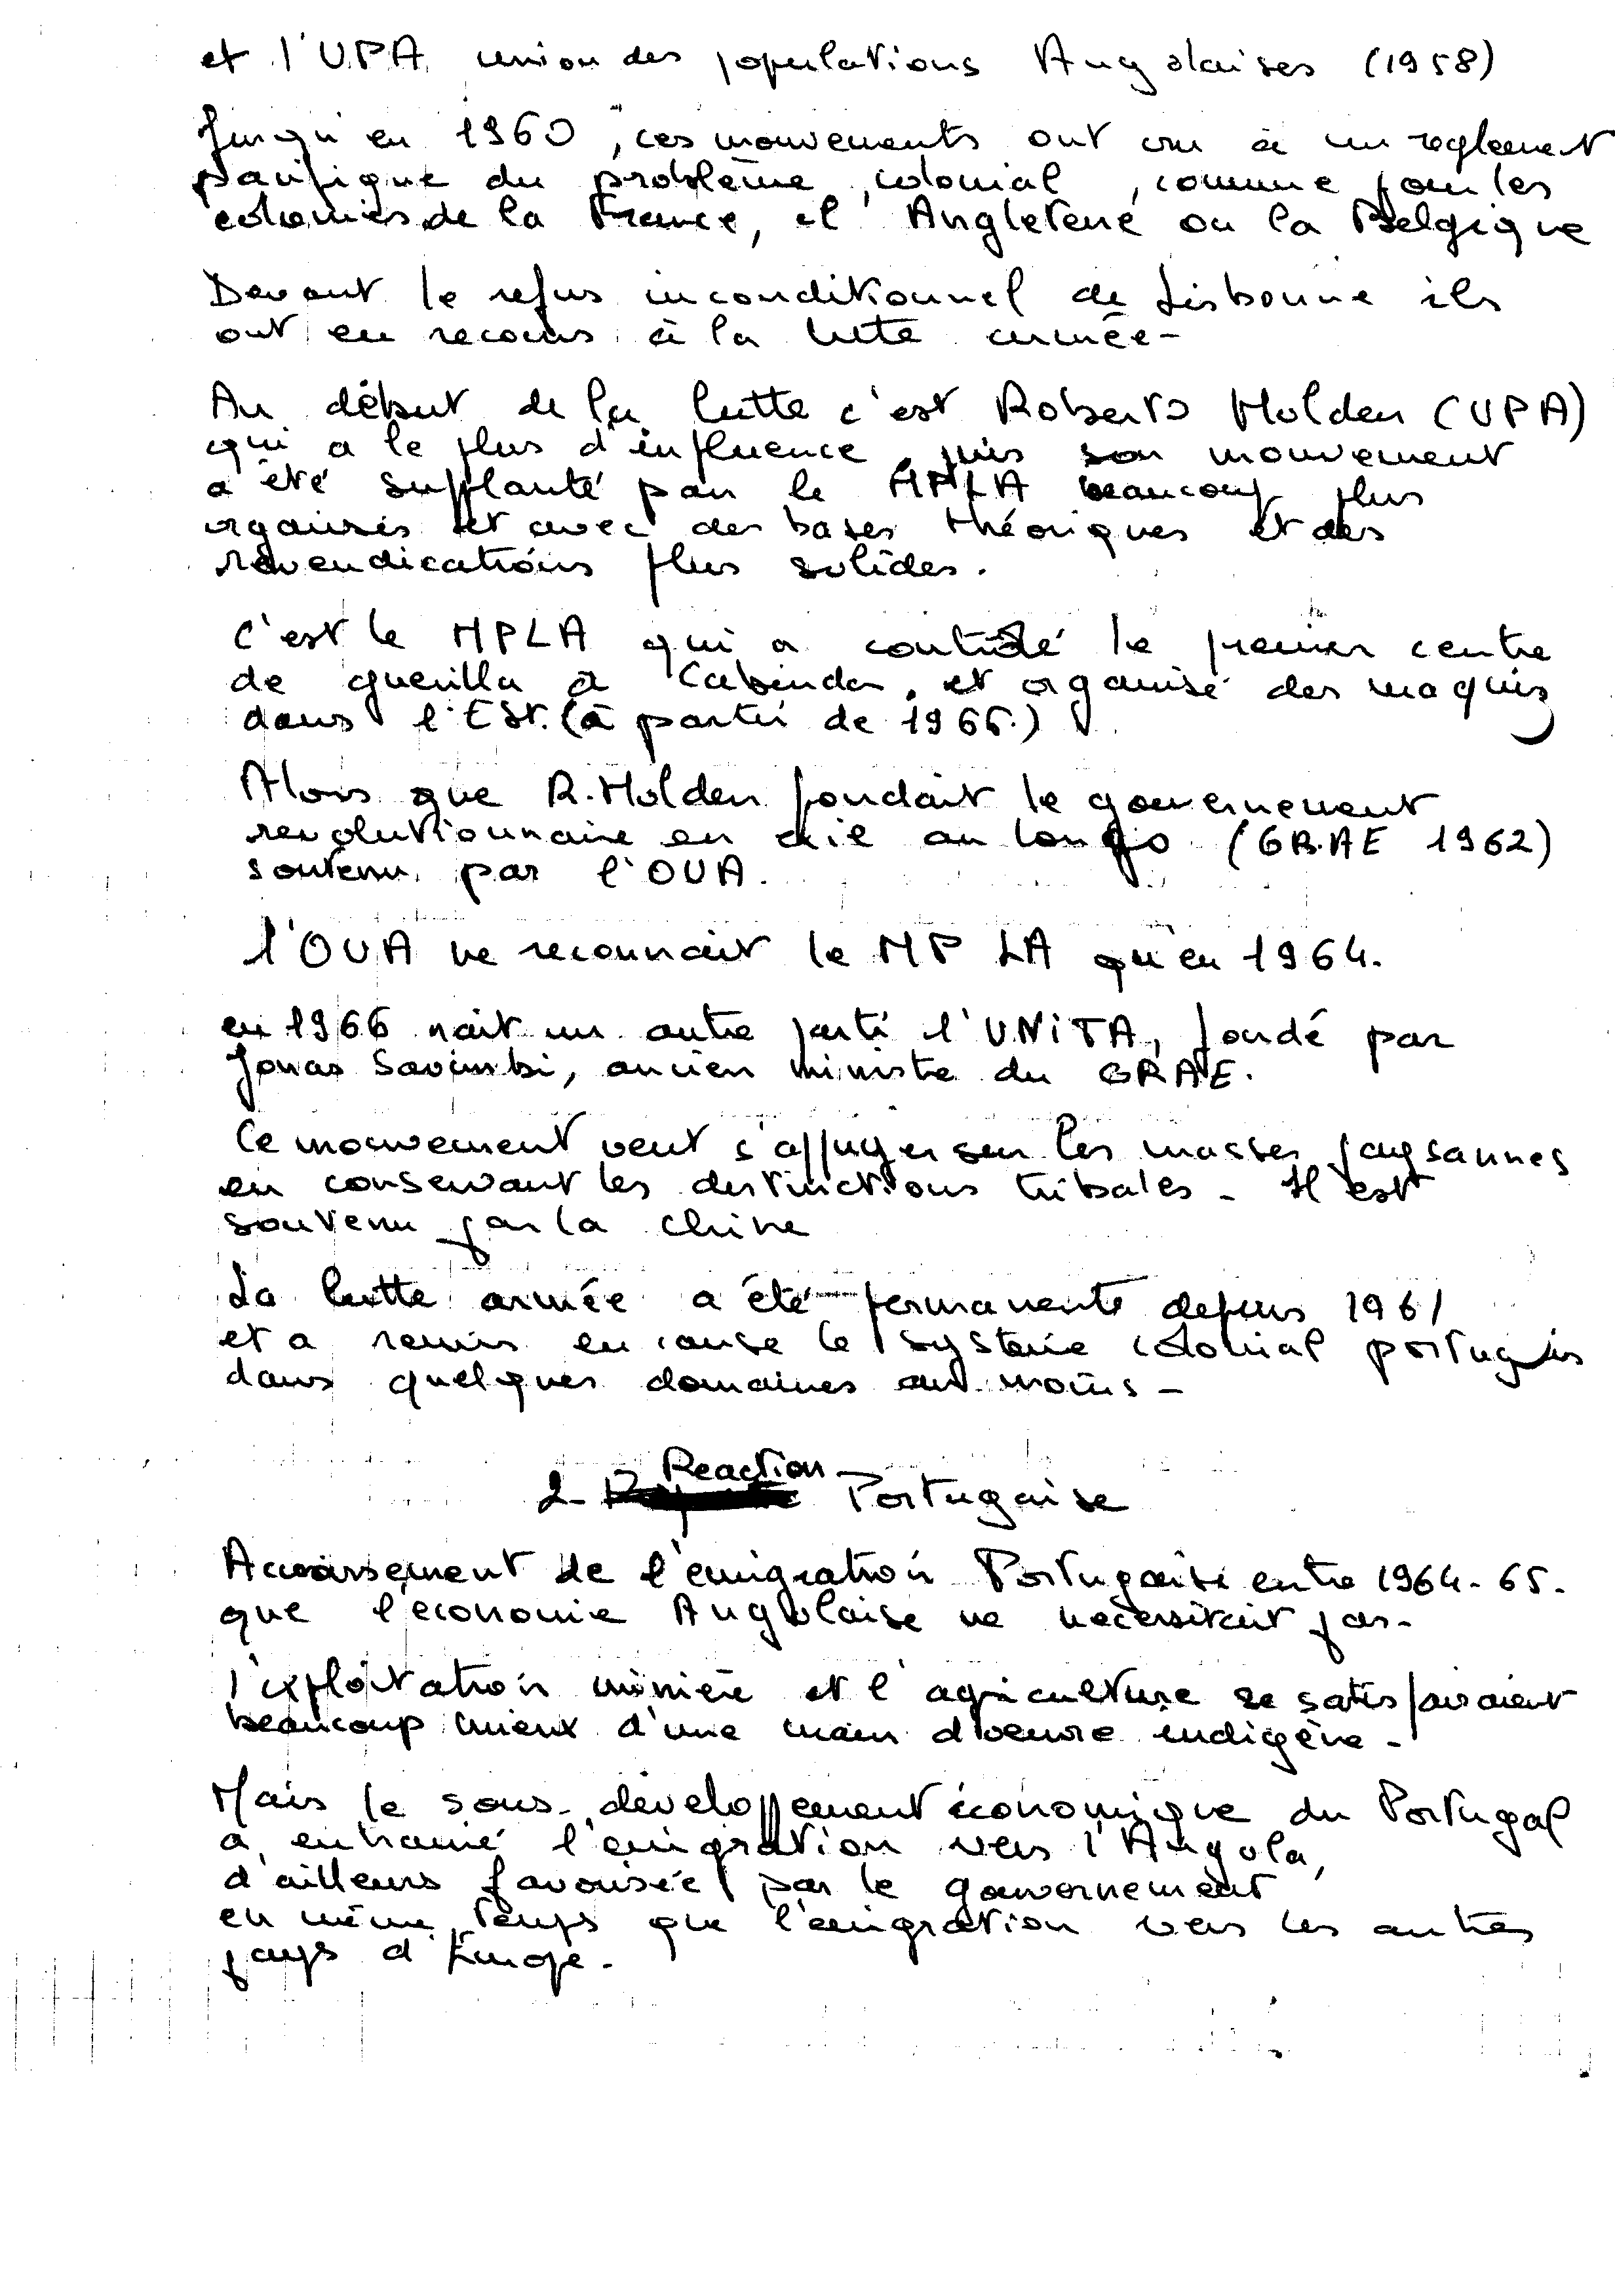 et l'UPA union des populations Angolaises (1958)
Jusqu'en 1960, ces mouvements ont cru à un reglement
pacifique du problème colonial, comme pour les
colonies de la France, l'Angleterre ou la Belgique
Devant le refus inconditionnel de Lisbonne ils
ont eu recours à la lutte armée-
Au début de la lutte c'est Roberto Holden (UPA)
qui a le plus d'influence, puis son mouvement
a été supplanté par le MPLA beaucoup plus
organisés et avec des bases théoriques et des
revendications plus solides.
C'est le MPLA qui a contrôlé le premier centre
de guerilla à Cabinda, et organisé des maquis
dans l'Est. (à partir de 1966.)
Alors que R. Holden fondait le gouvernement
revolutionnaire en exil au Congo (GRAE 1962)
soutenu par l'OUA.
l'OUA ne reconnait le MPLA qu'en 1964.
en 1966 nait un autre parti l'UNiTA, fondé par
Jonas Savimbi, ancien ministre du GRAE.
Ce mouvement veut s'appuyer sur les masses paysannes
en conservant les distinctions tribales - Il est
soutenu par la chine
La lutte armée a été permanente depuis 1961
et a remis en cause le système colonial portugais
dans quelques domaines au moins -
2- Reaction Portugaise
Accroissement de l'émigration Portugaise entre 1964-65.
que l'économie Angolaise ne necessitait pas-
l'exploitation minière et l'agriculture se satisfaisaient
beaucoup mieux d'une main d'oeuvre indigène -
Mais le sous-développement économique du Portugal
a entrainé l'émigration vers l'Angola,
d'ailleurs favorisée par le gouvernement
en même temps que l'émigration vers les autres
pays d'Europe.